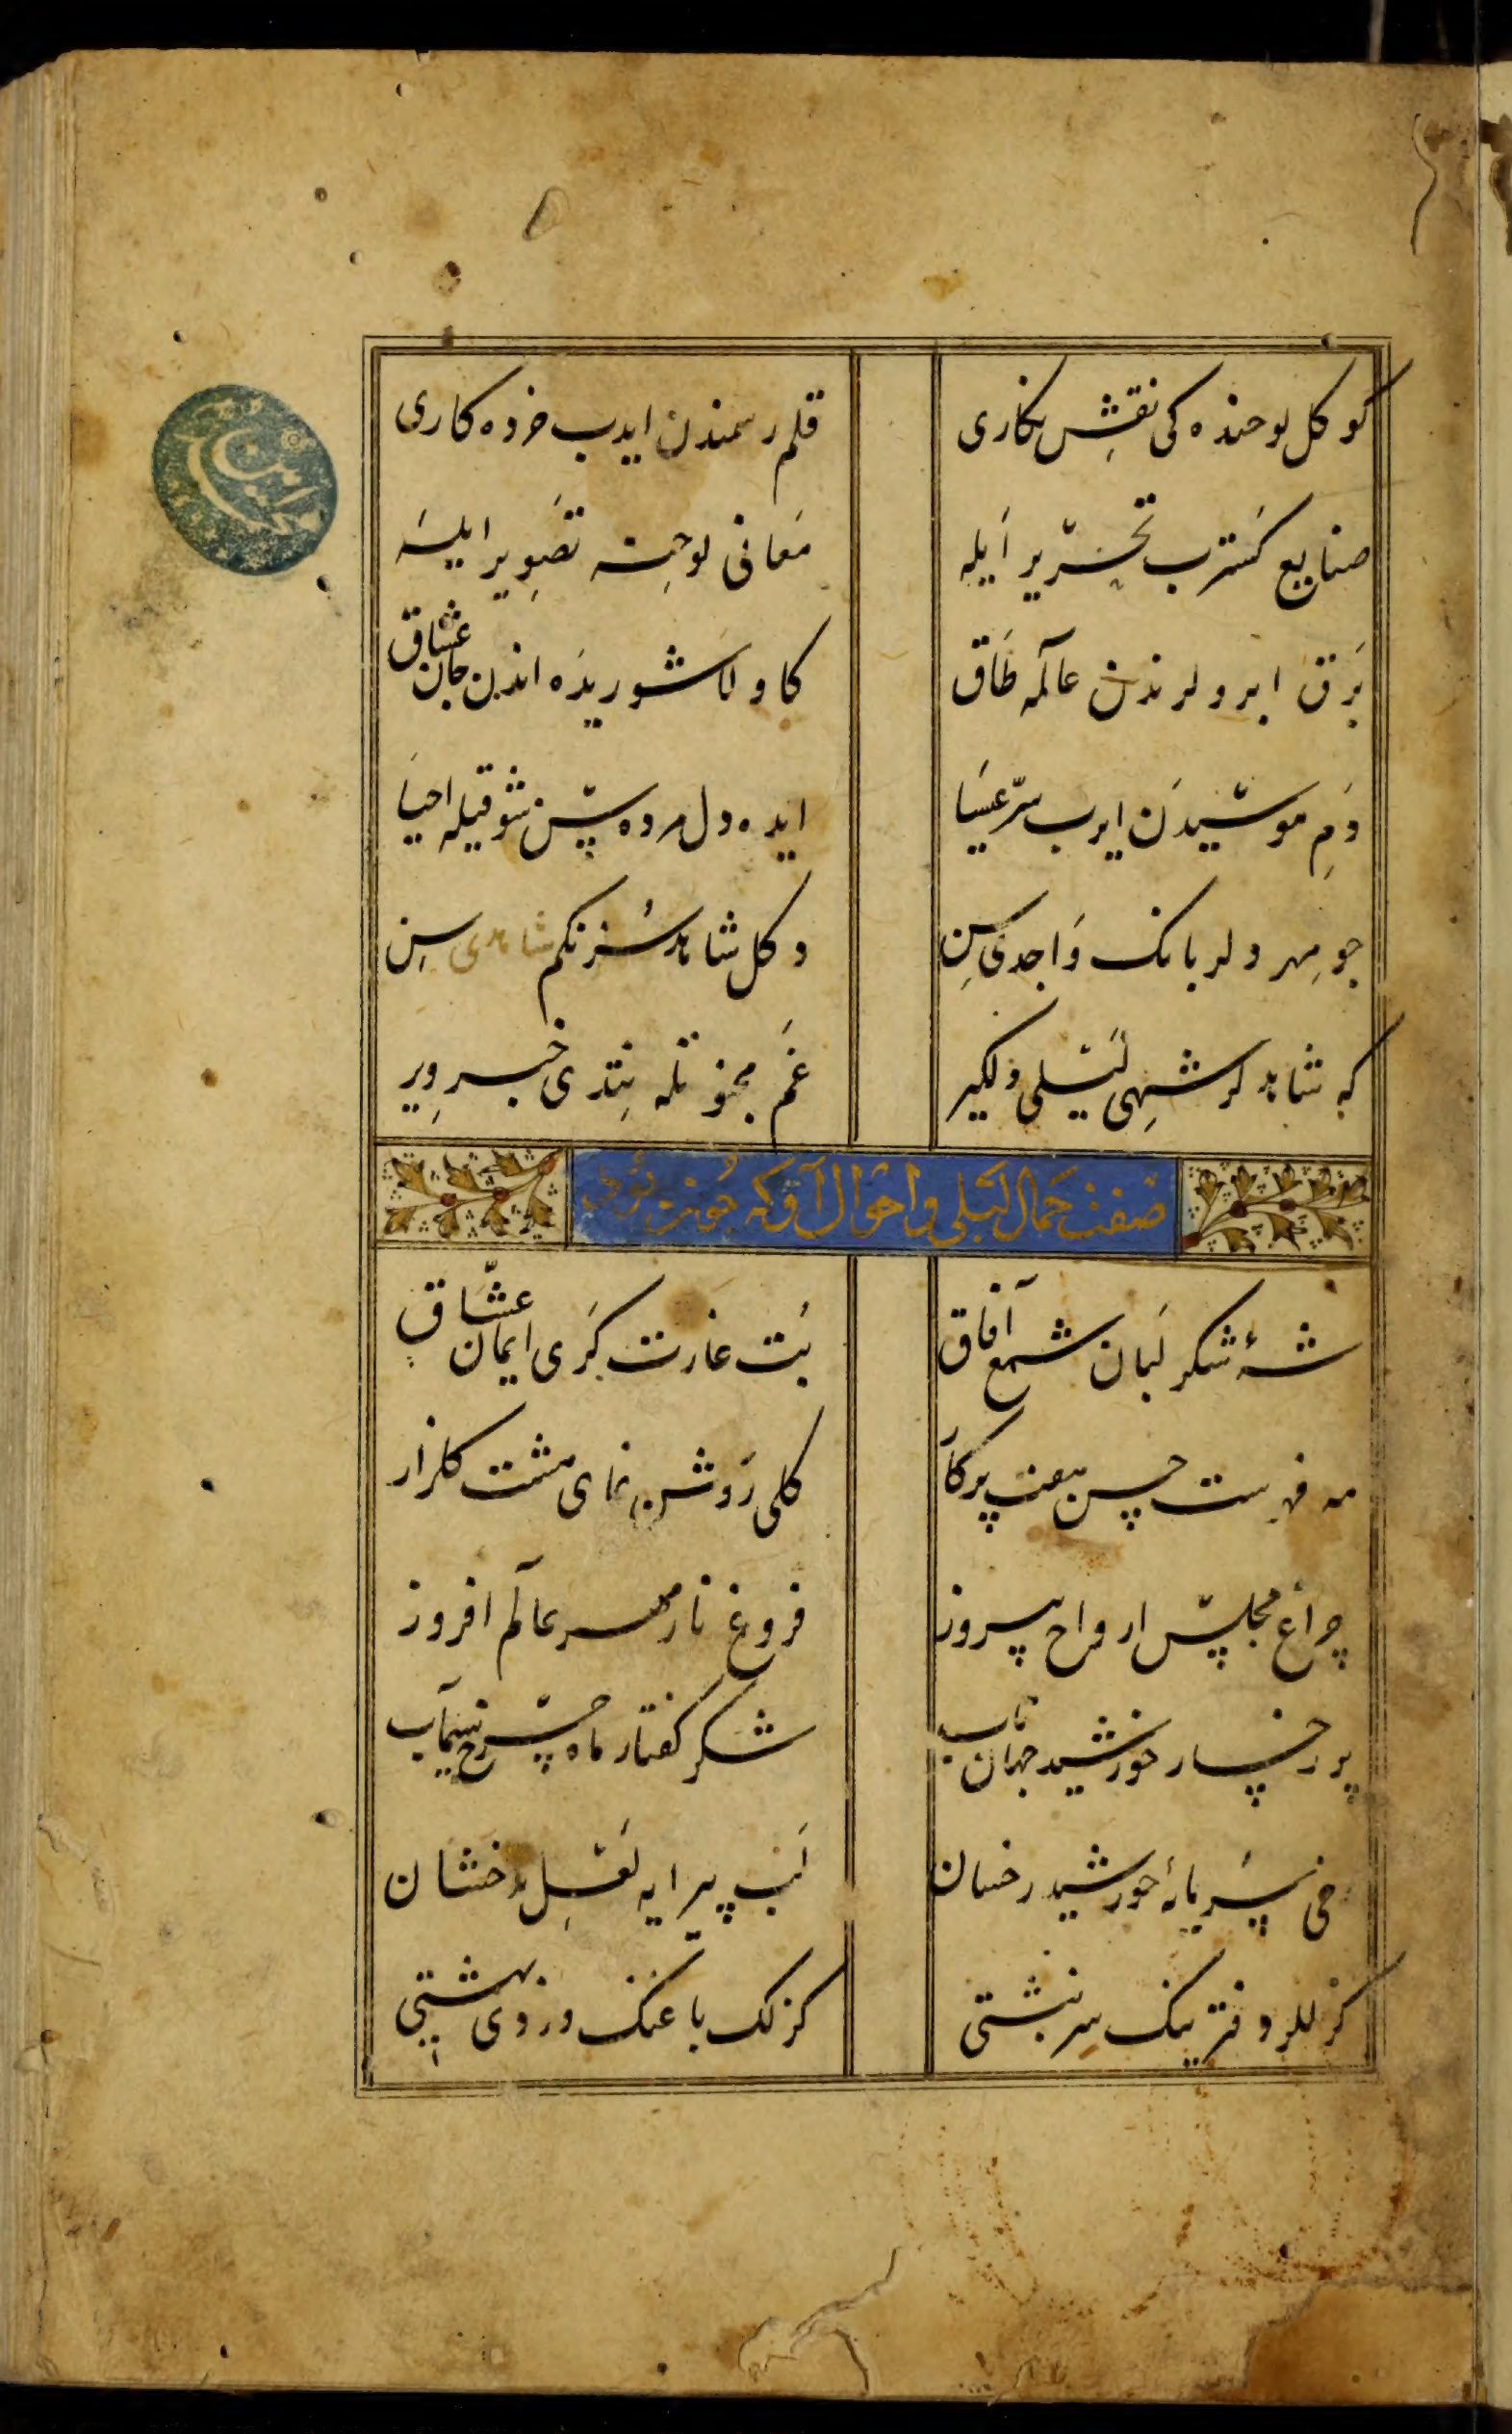 كوكل لوحنده كی نقش نكاری
قلم رسمندن ایدب خرده كاری
صنایع كسترب تحریر ایله
معانی لوحته تصویر ایله
برق ابرولرندن عالمه طاق
كا ولا شوریده اندن جان عشاق
دم موسیدن ایرب سر عیسا
ایده دل مرده سن شوقیله احیا
چو مهر دلربانك واجدی سن
دكل شاهدسز نكم شاهدی سن
كه شاهدلر شهی لیلی دلكیر
غم مجنونله نتدی خبر ویر
صفت جمال لیلی و احوال آو كه چونت
شه شكر لبان شمع آفاق
بت غارت كری ایمان عشاق
مه فهرست حسن هفت پركار
كلی روشن نمای هشت كلزار
چراغ مجلس ارواح پیروز
فروغ نار مهر عالم افروز
پر رخسار خورشید جهان تاب
شكر كفتار ماه چرخ سیماب
رخی سرمایهٔ خورشید رخشان
لب پیرایه لعل بدخشان
كزللر دفترینك سرنبشتی
كزلك باغنك وردی بهشتی